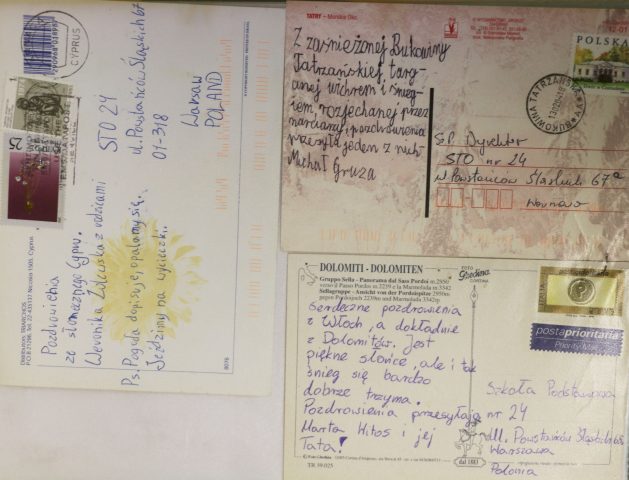 CYPRUS
25
STO 24
ul. Powstańców Śląskich 67
01-318
Warsaw
POLAND
Pozdrowienia
ze słonecznego Cypru.
Weronika z rodzicami
Ps. Pogoda dopisuje, opalamy się.
Jeździmy na wycieczki.
TATRY - Morskie Oko
Z zaśnieżonej Bukowiny
Tatrzańskiej, targ-
anej wichrem i śnieg-
iem, rozjechanej przez
narciarzy, pozdrowienia
przesyła jeden z nich
Michał Gruza
POLSKA
BUKOWINA TATRZAŃSKA
S.P. Dyrektor
STO nr 24
ul Powstańców Śląskich 67a
Warszawa
DOLOMITI - DOLOMITEN
Gruppo Sella - Panorama dal Sass Pordoi m.2950
verso il Passo Pordoi m.2239 e la Marmolada m.3342
Sellagruppe - Ansicht von der Pordoispitze 2950m
gegen Pordoijoch 2239m und Marmolada 3342m
Serdeczne pozdrowienia
z Włoch, a dokładnie
z Dolomitów. Jest
piękne słońce, ale i tak
śnieg się bardzo
dobrze trzyma.
Pozdrowienia przesyłają
Marta Witos i jej
Tata!
TR 59.025
FOTO
Ghedina
dal 1883
ITALIA
postaprioritaria
Priority Mail
Szkoła Podstawowa
nr 24
ul. Powstańców Śląskich
Warszawa
Polonia